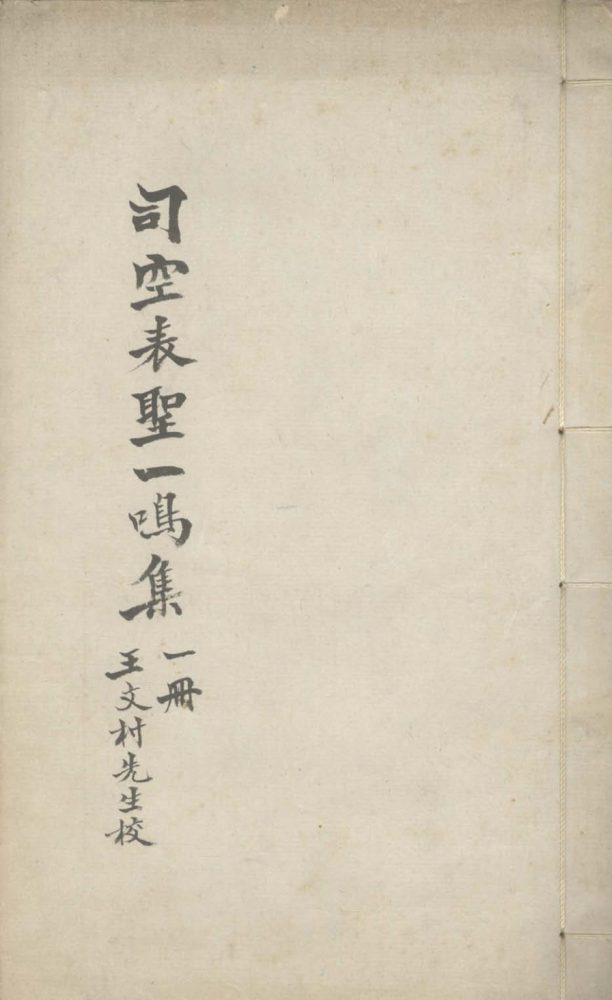 司空表聖一鳴集
一冊
王文村先生校